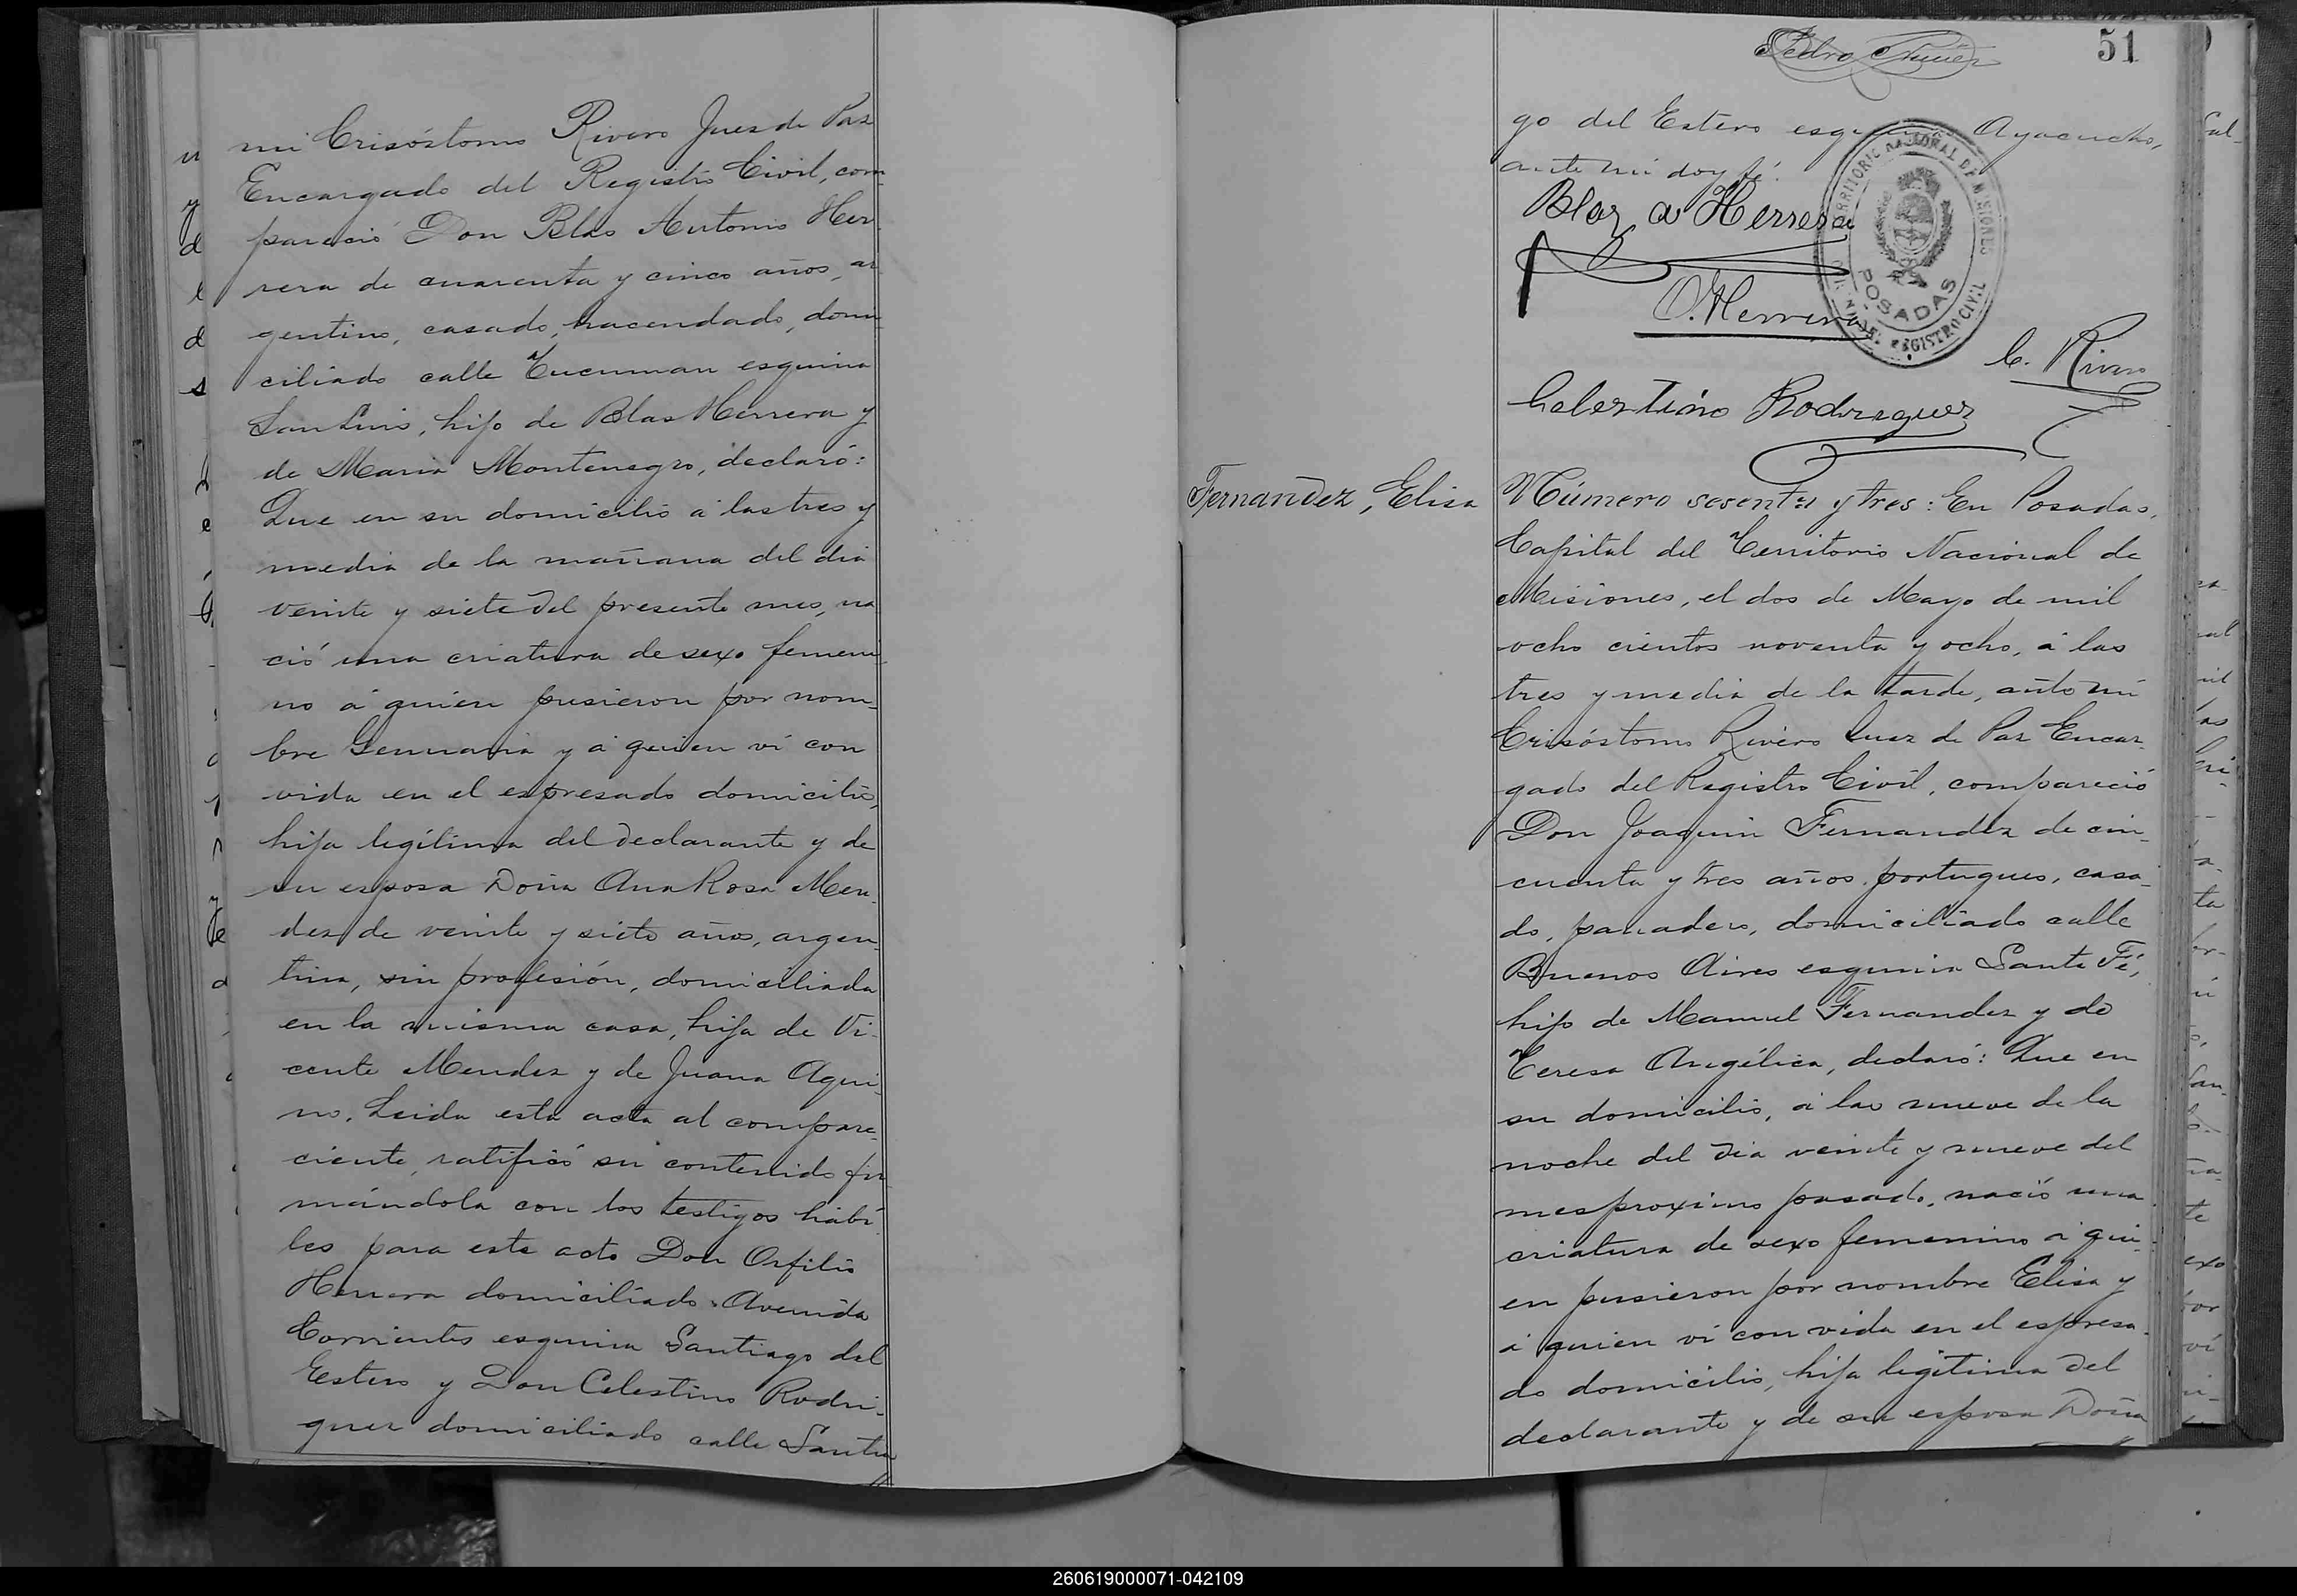 mi Crisóstomo Rivero Juez de Paz
Encargado del Registro Civil, com-
pareció Don Blas Antonio Her-
rera de cuarenta y cinco años, ar
gentino, casado, hacendado, domi
ciliado calle Tucuman esquina
San Luis, hijo de Blas Herrera y
de Maria Montenegro, declaró:
Que en su domicilio á las tres y
media de la mañana del dia
veinte y siete del presente mes, na
ció una criatura de sexo femeni
no á quien pusieron por nom-
bre Gennaria y á quien vi con
vida en el espresado domicilio,
hija legítima del declarante y de
su esposa Doña Ana Rosa Men-
dez de veinte y siete años, argen-
tina, sin profesión, domiciliada
en la misma casa, hija de Vi-
cente Mendez y de Juana Aqui-
no. Leida esta acta al compare-
ciente, ratificó su contenido fir
mándola con los testigos hábi
les para este acto Don Orfilio
Herrera domiciliado Avenida
Corrientes esquina Santiago del
Estero y Don Celestino Rodri-
guez domiciliado calle Santia
51
go del Estero esquina Ayacucho,
ante mi doy fé.
Blaz A Herrera
TERRITORIO NACIONAL DE MISIONES
POSADAS
REGISTRO CIVIL
O. Herrera
C. Rivero
Celestino Rodriguez
Fernandez, Elisa
Número sesenta y tres: En Posadas,
Capital del Territorio Nacional de
Misiones, el dos de Mayo de mil
ocho cientos noventa y ocho, á las
tres y media de la tarde, ante mi
Crisóstomo Rivero Juez de Paz Encar-
gado del Registro Civil, compareció
Don Joaquin Fernandez de cin-
cuenta y tres años, portugues, casa-
do, panadero, domiciliado calle
Buenos Aires esquina Santa Fé,
hijo de Manuel Fernandez y de
Teresa Angélica, declaró: Que en
su domicilio, á las nueve de la
noche del dia veinte y nueve del
mes proximo pasado, nació una
criatura de sexo femenino á qui-
en pusieron por nombre Elisa y
á quien vi con vida en el espresa-
do domicilio, hija legítima del
declarante y de su esposa Doña
260619000071-042109